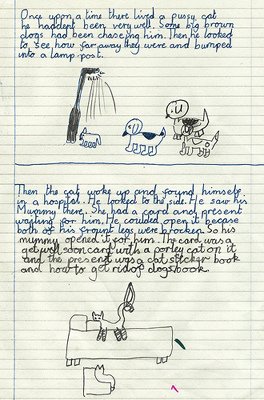 Once upon a time there lived a pussy cat
he haddent been very well. Some big brown
dogs had been chasing him. Then he looked
to see how far away they were and bumped
into a lamp post.
Then the cat woke up and found himself
in a hospital. He looked to the side. He saw his
Mummy there. She had a card and present
waiting for him. He couldent open it becase
both of his frount legs were brocken. So his
mummy opened it for him. The card was a
get well soon card with a porley cat on it
and the present was a cat sticker book
and how to get rid of dogs book.